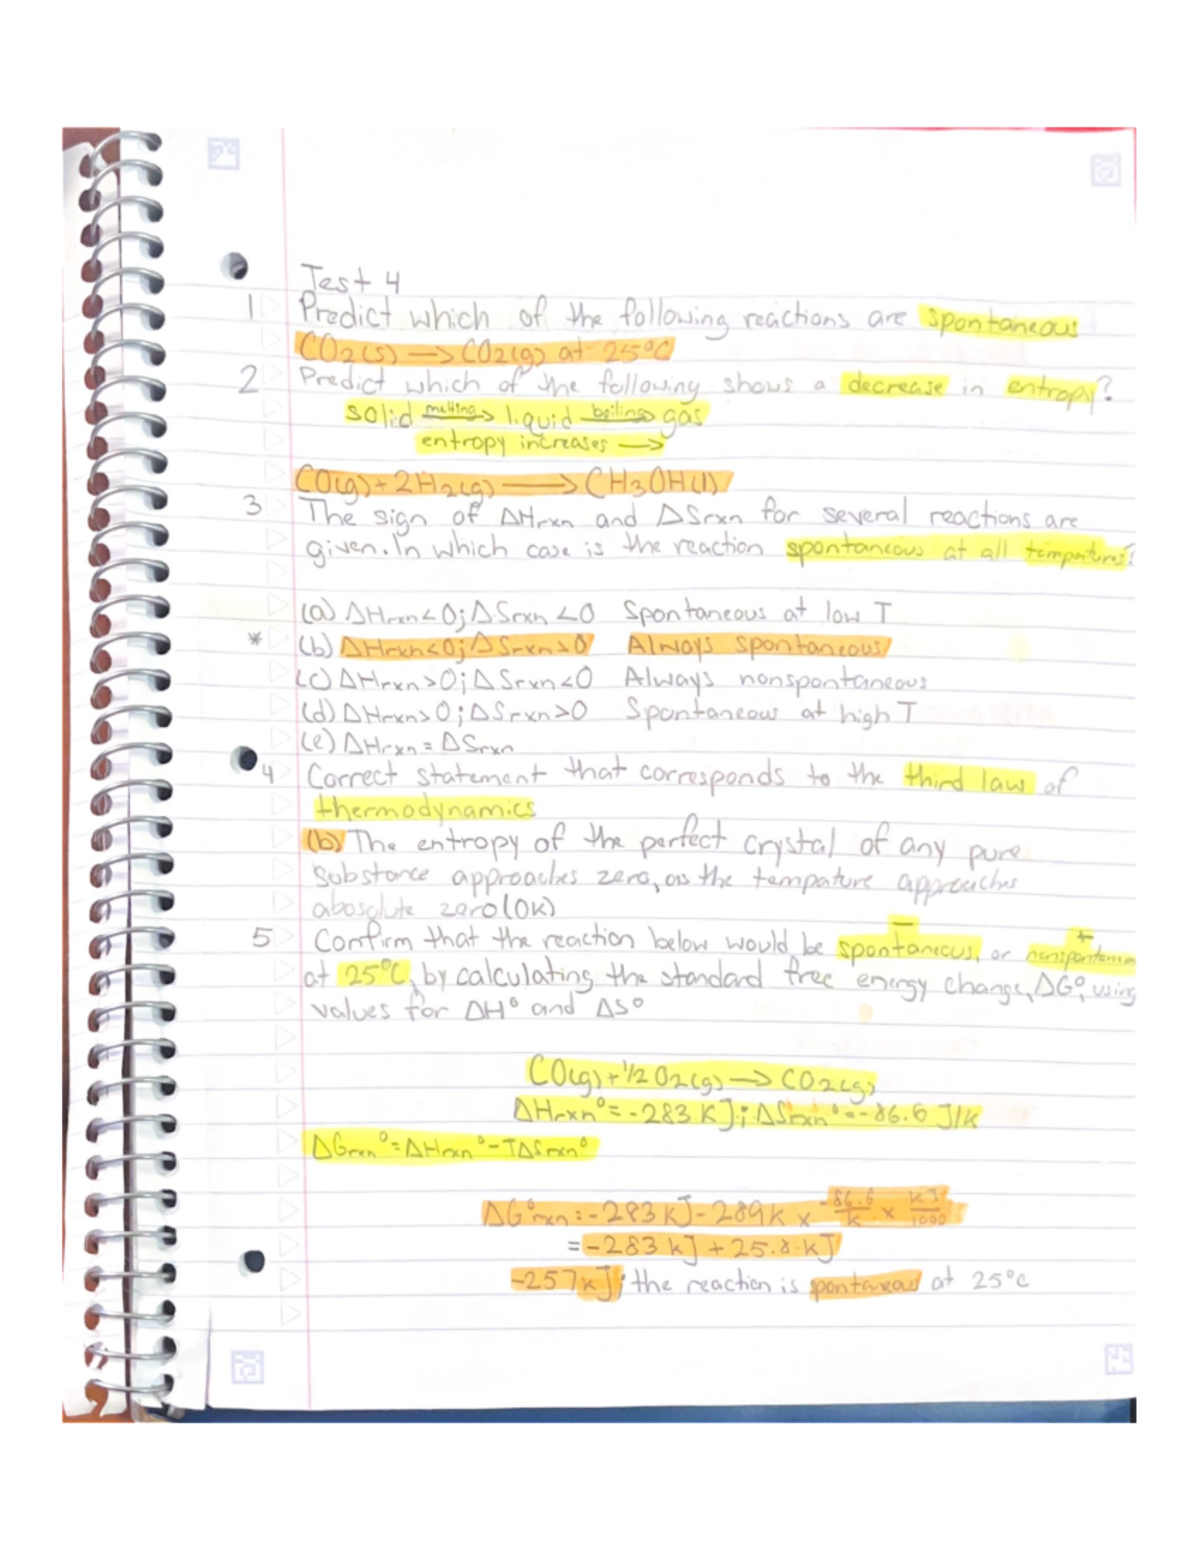 Test 4
1 Predict which of the following reactions are spontaneous
CO2(s) → CO2(g) at 25°C
2 Predict which of the following shows a decrease in entropy?
solid melting→ liquid boiling→ gas
entropy increases →
CO(g) + 2H2(g) → CH3OH(l)
3 The sign of ΔHrxn and ΔSrxn for several reactions are
given. In which case is the reaction spontaneous at all tempatures?
(a) ΔHrxn<0; ΔSrxn <0 Spontaneous at low T
* (b) ΔHrxn<0; ΔSrxn>0 Always spontaneous
(c) ΔHrxn>0; ΔSrxn<0 Always nonspontaneous
(d) ΔHrxn>0; ΔSrxn>0 Spontaneous at high T
(e) ΔHrxn = ΔSrxn
4 Correct statement that corresponds to the third law of
thermodynamics
(b) The entropy of the perfect crystal of any pure
substance approaches zero, as the tempature approaches
abosolute zero (0K)
− +
5 Confirm that the reaction below would be spontaneous, or nonspontaneous
at 25°C, by calculating the standard free energy change, ΔG°, using
values for ΔH° and ΔS°
CO(g) + 1/2 O2(g) → CO2(g)
ΔHrxn° = -283 KJ; ΔSrxn° = -86.6 J/k
ΔGrxn° = ΔHrxn° - TΔSrxn°
ΔG°rxn = -283 kJ - 289k × -86.6/k × kJ/1000
= -283 kJ + 25.8 kJ
-257 kJ; the reaction is spontaneous at 25°C